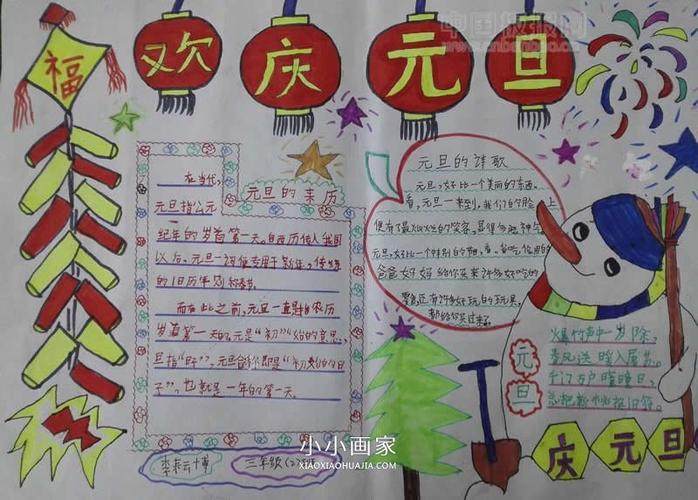 福
欢庆元旦
中国板报网
元旦的来历
在当代，
元旦指公元
纪年的岁首第一天。自西历传入我国
以后，元旦一词便专用于新年，传统
的旧历年则称春节。
而在此之前，元旦一直是农历
岁首第一天的。元是“初”“始”的意思，
旦指“日子”，元旦合称即是“初始的日
子”，也就是一年的第一天。
三年级(2)班
元旦的诗歌
元旦好比一个美丽的东西。
看，元旦一来到，我们的脸上
便有了
爸爸妈妈给你买来许多好吃的
零食还有许多好玩的玩具，
元旦
爆竹声中一岁除，
春风送暖入屠苏。
千门万户曈曈日，
总把新桃换旧符。
庆元旦
小小画家
XIAOXIAOHUAJIA.COM